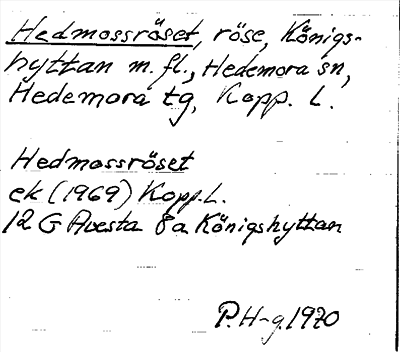 Hedmossröset, röse, Königs-
hyttan m.fl., Hedemora sn,
Hedemora tg, Kopp. L.
Hedmossröset
ek (1969) Kopp.L.
12 G Avesta 8a Königshyttan
P.H-g.1970